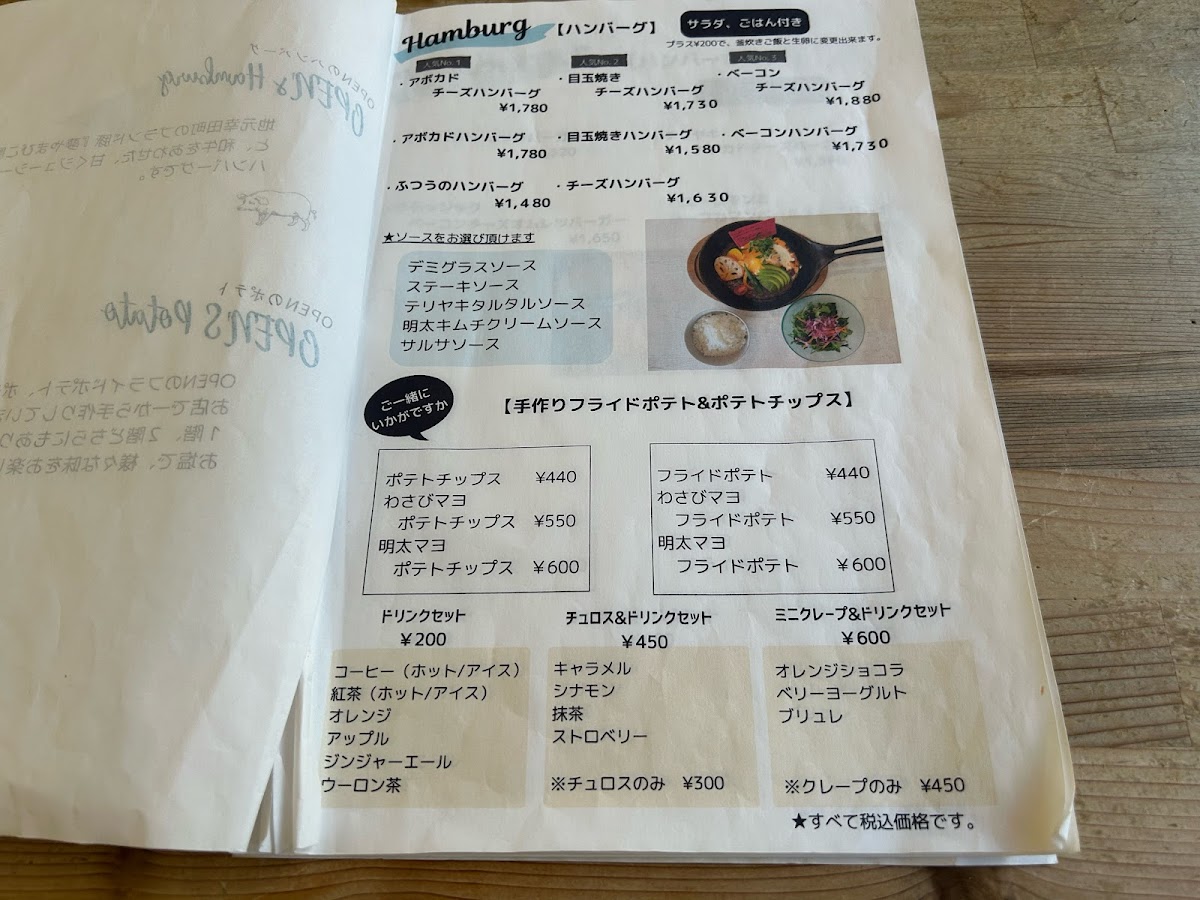 Hamburg 【ハンバーグ】 サラダ、ごはん付き
プラス¥200で、釜炊きご飯と生卵に変更出来ます。
人気No.1 人気No.2 人気No.3
・アボカド ・目玉焼き ・ベーコン
チーズハンバーグ チーズハンバーグ チーズハンバーグ
¥1,780 ¥1,730 ¥1,880
・アボカドハンバーグ ・目玉焼きハンバーグ ・ベーコンハンバーグ
¥1,780 ¥1,580 ¥1,730
・ふつうのハンバーグ ・チーズハンバーグ
¥1,480 ¥1,630
★ソースをお選び頂けます
デミグラスソース
ステーキソース
テリヤキタルタルソース
明太キムチクリームソース
サルサソース
ご一緒に
いかがですか
【手作りフライドポテト&ポテトチップス】
ポテトチップス ¥440
わさびマヨ
ポテトチップス ¥550
明太マヨ
ポテトチップス ¥600
フライドポテト ¥440
わさびマヨ
フライドポテト ¥550
明太マヨ
フライドポテト ¥600
ドリンクセット
¥200
コーヒー（ホット/アイス）
紅茶（ホット/アイス）
オレンジ
アップル
ジンジャーエール
ウーロン茶
チュロス&ドリンクセット
¥450
キャラメル
シナモン
抹茶
ストロベリー
※チュロスのみ ¥300
ミニクレープ&ドリンクセット
¥600
オレンジショコラ
ベリーヨーグルト
ブリュレ
※クレープのみ ¥450
★すべて税込価格です。
OPENのハンバーグ
OPEN's Hamburg
地元幸田町のブランド豚『夢やまび
と、和牛をあわせた、甘くジューシー
ハンバーグです。
OPENのポテト
OPEN'S Potato
OPENのフライドポテト、ポ
お店で一から手作りしてい
1階、2階どちらにもあり
お塩で、様々な味をお楽し